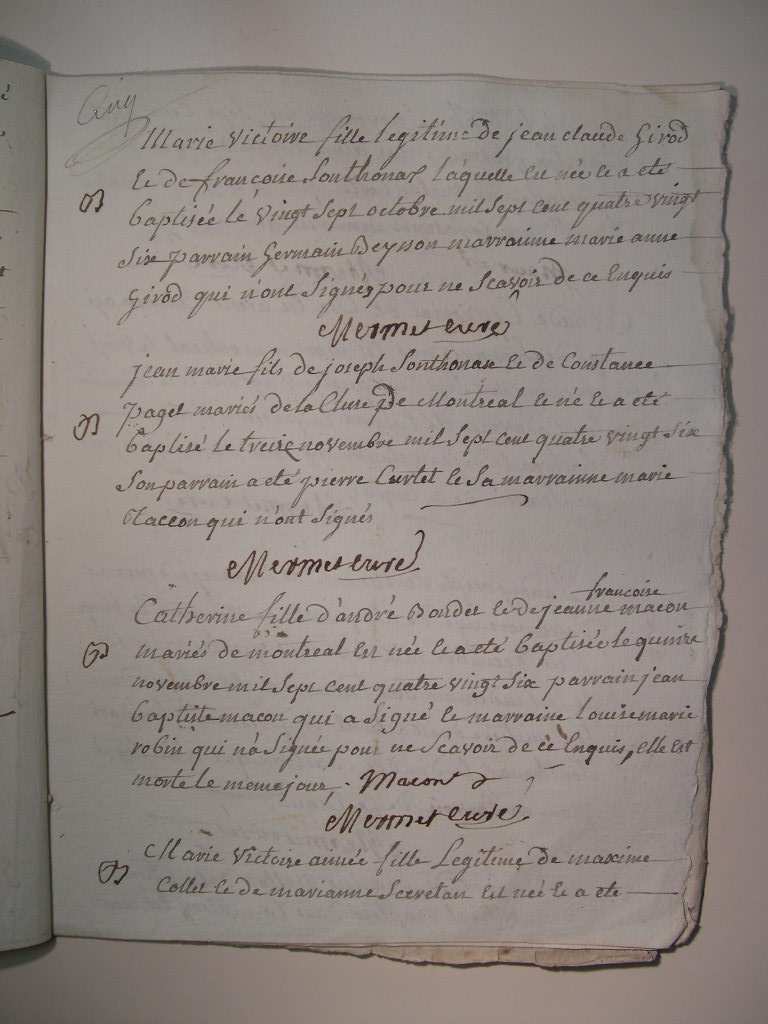 Cinq
Marie Victoire fille legitime de jean claude Girod
et de françoise Sonthonas laquelle est née et a eté
baptisée le vingt Sept octobre mil Sept cent quatre vingt
Six parrain Germain Beysson marrainne marie anne
Girod qui n'ont Signés pour ne Scavoir de ce Enquis
Mermet curé
jean marie fils de joseph Sonthonax et de Constance
paget mariés de la Cluse P de Montreal et né et a eté
baptisé le treize novembre mil Sept cent quatre vingt Six
Son parrain a eté pierre Curtet et Sa marrainne marie
Taccon qui n'ont Signés
Mermet curé
francoise
Catherine fille d'andré Bondet et de jeanne macon
mariés de montreal est née et a eté baptisée le quinze
novembre mil Sept cent quatre vingt Six parrain jean
baptiste macon qui a Signé et marraine louise marie
robin qui n'a Signée pour ne Scavoir de ce Enquis, elle est
morte le meme jour, Macon
Mermet curé
Marie Victoire ainnée fille Legitime de maxime
Collet et de marianne Secretan est née et a eté